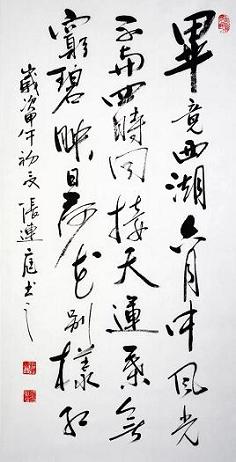 畢竟西湖六月中風光
不與四時同接天蓮葉無
窮碧映日荷花別樣紅
歲次甲午初夏張連庭书之